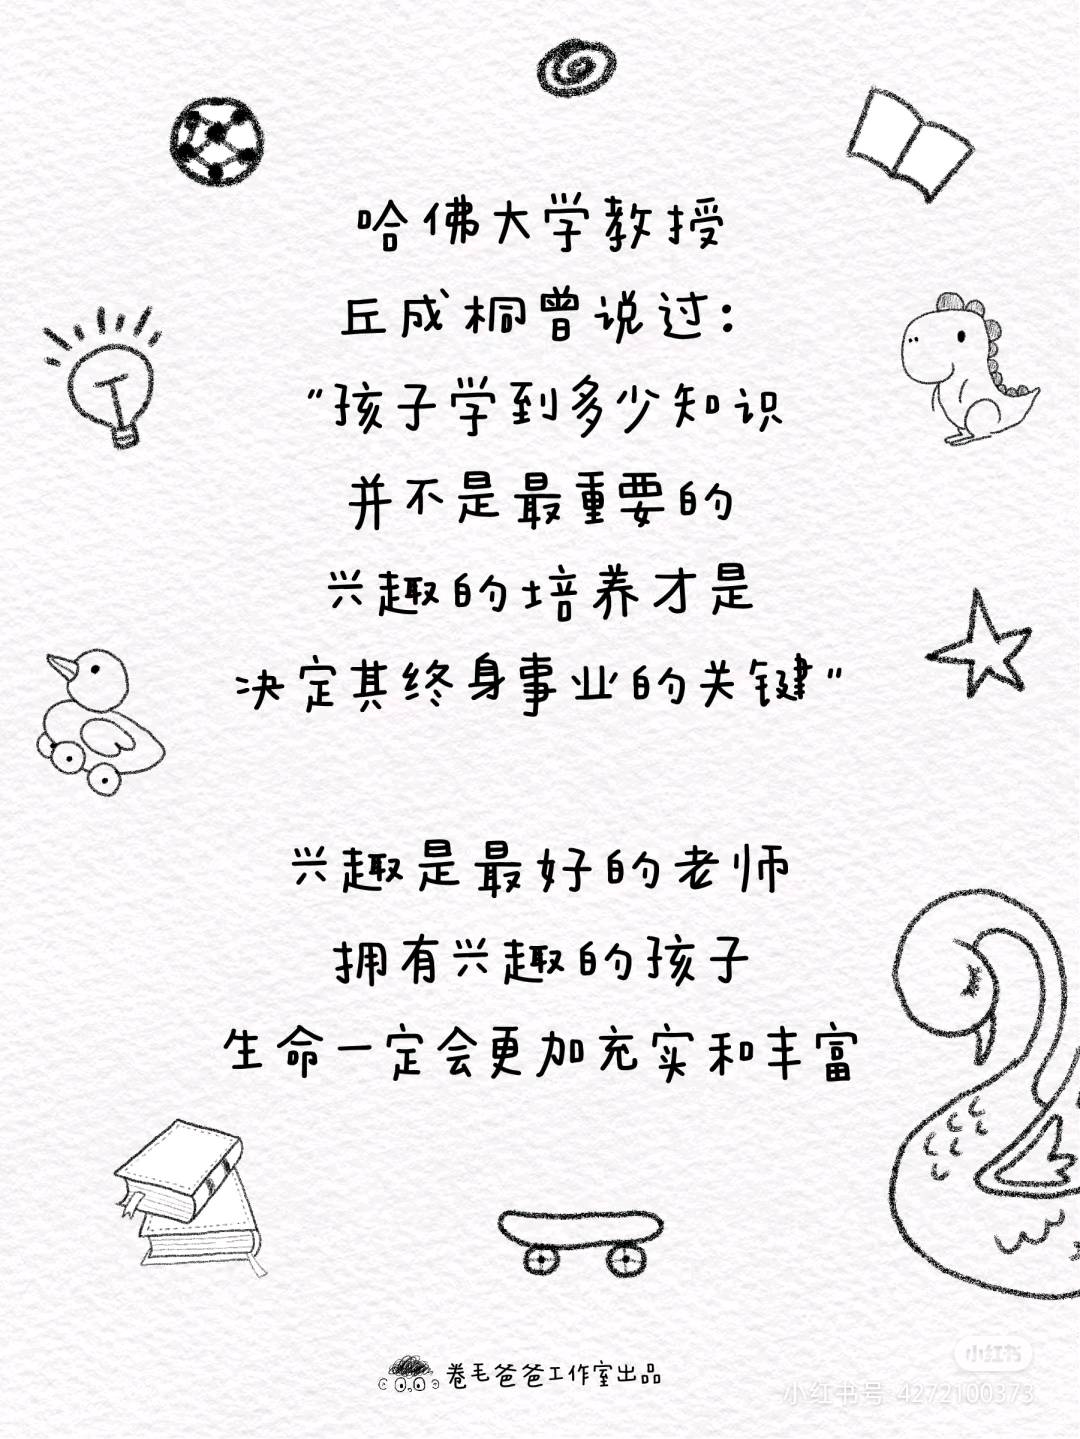 哈佛大学教授
丘成桐曾说过：
"孩子学到多少知识
并不是最重要的
兴趣的培养才是
决定其终身事业的关键"
兴趣是最好的老师
拥有兴趣的孩子
生命一定会更加充实和丰富
卷毛爸爸工作室出品
小红书
小红书号 4272100373